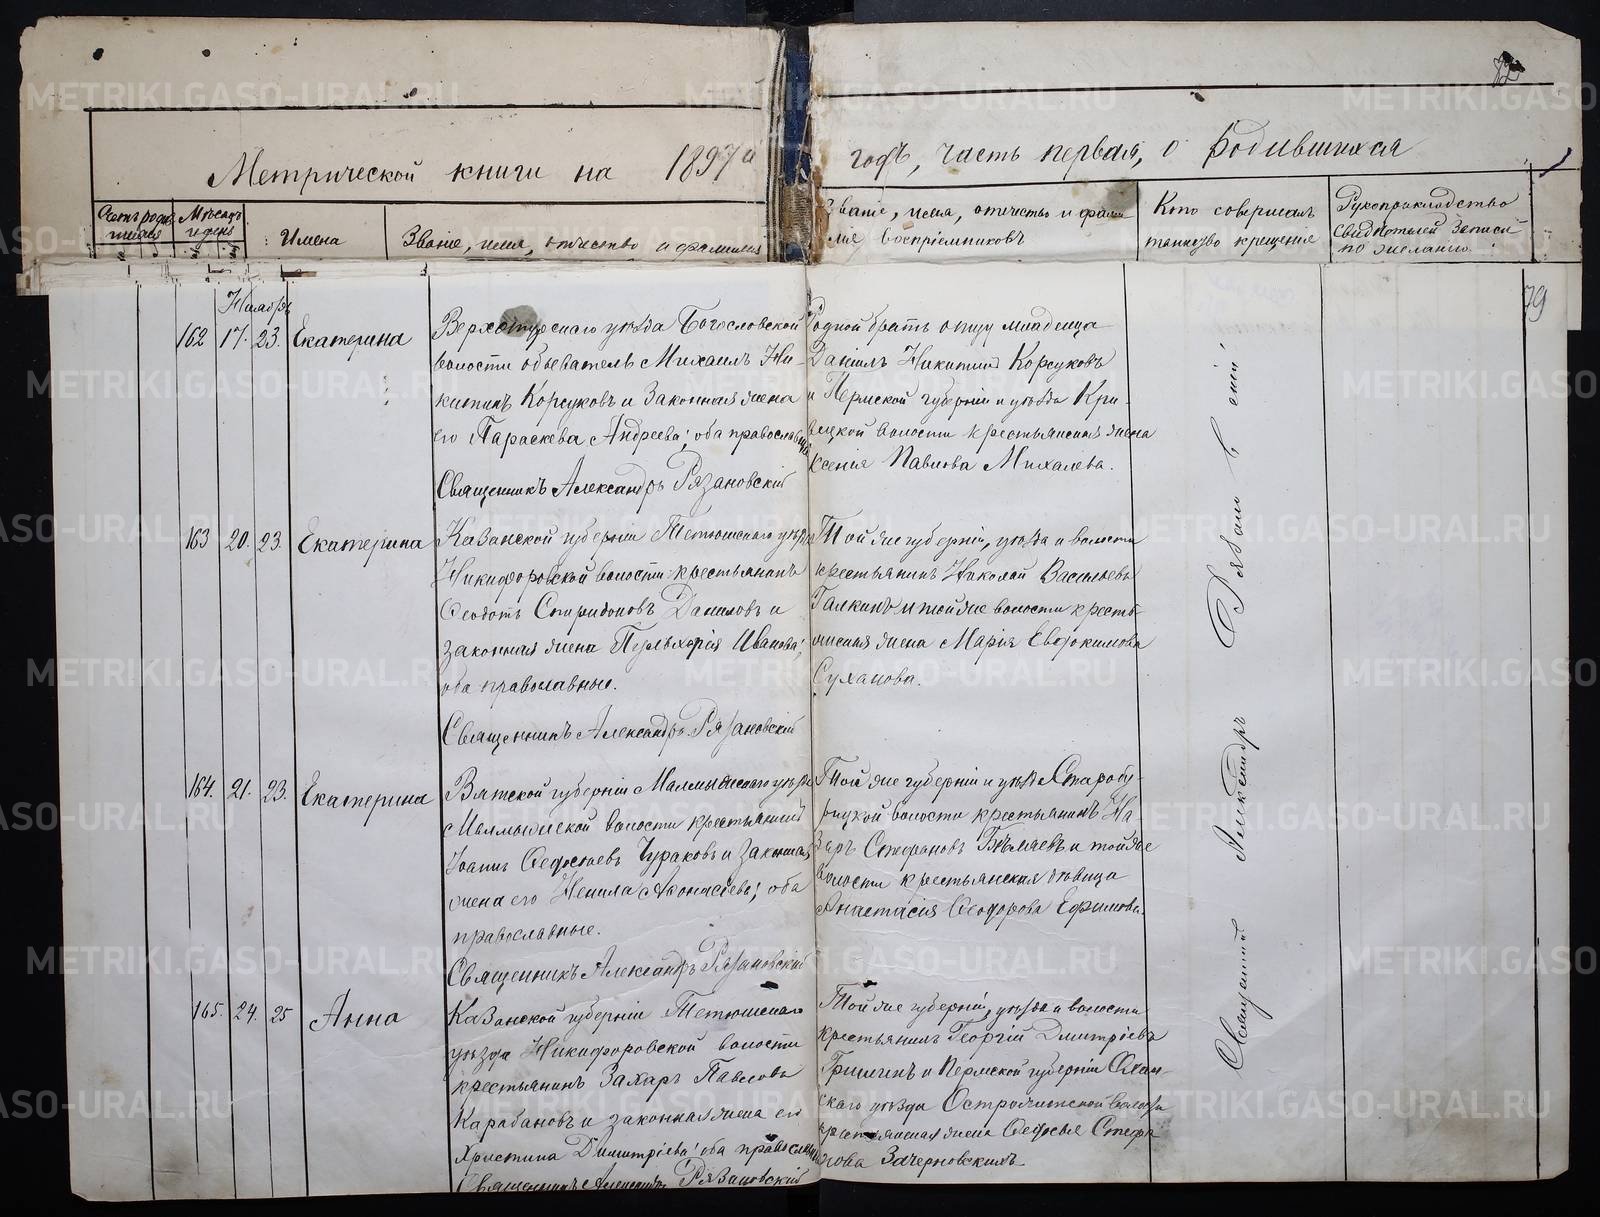 Метрической книги на 1897й
годъ, часть первая, о Родившихся
Счетъ родив-
шихся
Мѣсяцъ
и день
Имена
Званіе, имя, отчество и фамилія
Званіе, имя, отчество и фами
лія воспріемниковъ
Кто совершалъ
таинство крещенія
Рукоприкладство
свидѣтелей записи
по желанію
79
Ноябрь
162 17. 23. Екатерина
Верхотурскаго уѣзда Богословской
волости обыватель Михаилъ Ни-
китинъ Корсуковъ и законная жена
его Параскева Андреева; оба православные
Священникъ Александръ Рязановскій
Родной братъ отцу младенца
Даніилъ Никитинъ Корсуковъ
и Пермской губерніи и уѣзда Кри-
вецкой волости крестьянская жена
Ксенія Павлова Михалева.
163 20. 23. Екатерина
Казанской губерніи Тетюшскаго уѣзда
Никифоровской волости крестьянинъ
Ѳеодотъ Спиридоновъ Даниловъ и
законная жена Пульхерія Иванова;
оба православные.
Священникъ Александръ Рязановскій
Той же губерніи, уѣзда и волости
крестьянинъ Николай Васильевъ
Галкинъ и той же волости кресть-
янская жена Марія Евдокимова
Суханова.
164. 21. 23. Екатерина
Вятской губерніи Малмыжскаго уѣзда
Малмыжской волости крестьянинъ
Іоаннъ Ѳедосѣевъ Чураковъ и законная
жена его Ненила Аѳонасіева; оба
православные.
Священникъ Александръ Рязановскій
Той же губерніи и уѣзда Старобу-
рецкой волости крестьянинъ На-
заръ Стефановъ Бѣляевъ и той же
волости крестьянская дѣвица
Анастасія Ѳеодорова Ефимова.
165. 24. 25 Анна
Казанской губерніи Тетюшскаго
уѣзда Никифоровской волости
крестьянинъ Захаръ Павловъ
Карабановъ и законная жена его
Христина Димитріева; оба православные
Священникъ Александръ Рязановскій
Той же губерніи, уѣзда и волости
крестьянинъ Георгій Димитріевъ
Гришинъ и Пермской губерніи Охан-
скаго уѣзда Острожитской волости
крестьянская жена Ѳедосья Стефа
нова Зачерновскихъ
Священникъ Александръ Рязановскій
METRIKI.GASO-URAL.RU